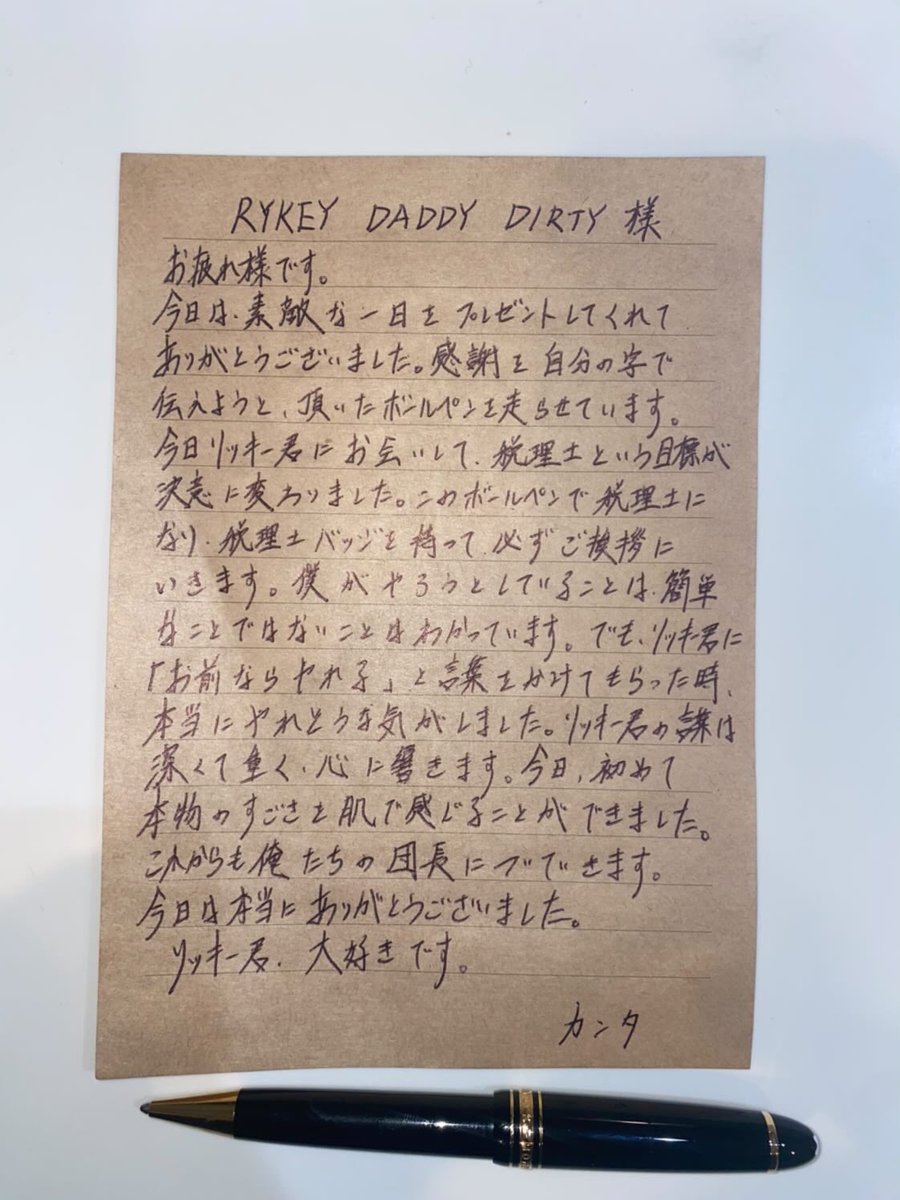 RYKEY DADDY DIRTY 様
お疲れ様です。
今日は、素敵な一日をプレゼントしてくれて
ありがとうございました。感謝を自分の字で
伝えようと、頂いたボールペンを走らせています。
今日リッキー君にお会いして、税理士という目標が
決意に変わりました。このボールペンで税理士に
なり、税理士バッジを持って、必ずご挨拶に
いきます。僕がやろうとしていることは、簡単
なことではないことはわかっています。でも、リッキー君に
「お前ならやれる」と言葉をかけてもらった時、
本当にやれそうな気がしました。リッキー君の言葉は
深くて重く、心に響きます。今日、初めて
本物のすごさを肌で感じることができました。
これからも俺たちの団長でいて
今日は本当にありがとうございました。
リッキー君、大好きです。
カンタ